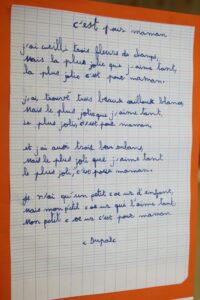 c'est pour maman
j'ai cueilli trois fleurs de champs,
Mais la plus jolie que j'aime tant,
la plus jolie c'est pour maman.
j'ai trouvé trois beaux cailloux blancs,
Mais le plus joli que j'aime tant,
Le plus joli, c'est pour maman.
et j'ai aussi trois beaux rubans,
Mais le plus joli que j'aime tant
le plus joli, c'est pour maman.
Je n'ai qu'un petit coeur d'enfant,
Mais mon petit coeur qui l'aime tant
Mon petit coeur c'est pour maman